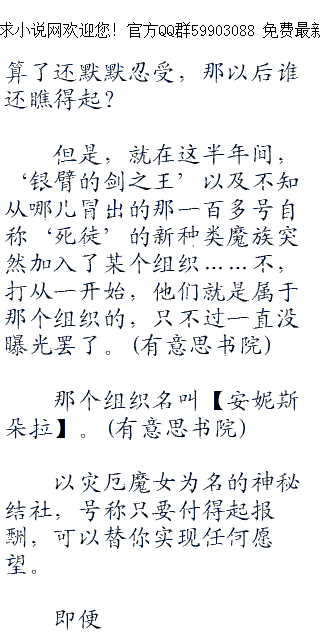 求小说网欢迎您! 官方QQ群59903088 免费最新
算了还默默忍受，那以后谁
还瞧得起？
但是，就在这半年间，
‘银臂的剑之王’以及不知
从哪儿冒出的那一百多号自
称‘死徒’的新种类魔族突
然加入了某个组织……不，
打从一开始，他们就是属于
那个组织的，只不过一直没
曝光罢了。(有意思书院)
那个组织名叫【安妮斯
朵拉】。(有意思书院)
以灾厄魔女为名的神秘
结社，号称只要付得起报
酬，可以替你实现任何愿
望。
即便